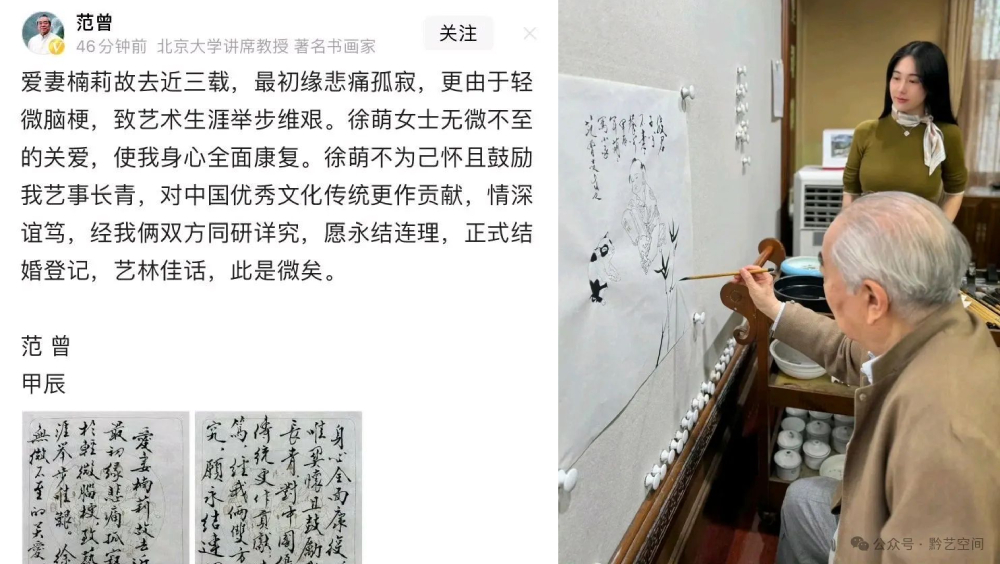 范曾
46分钟前 北京大学讲席教授 著名书画家
关注
爱妻楠莉故去近三载，最初缘悲痛孤寂，更由于轻
微脑梗，致艺术生涯举步维艰。徐萌女士无微不至
的关爱，使我身心全面康复。徐萌不为己怀且鼓励
我艺事长青，对中国优秀文化传统更作贡献，情深
谊笃，经我俩双方同研详究，愿永结连理，正式结
婚登记，艺林佳话，此是微矣。
范 曾
甲辰
愛妻楠莉故去近
最初缘悲痛孤寂
於輕微腦梗，致藝
涯举步维艱。徐
無微不至的关爱
身心全面康復
唯
懷且鼓勵
長青，對中國優
傳統更作貢獻
篤，经我俩雙方
究，願永结連
公众号·黔艺空间